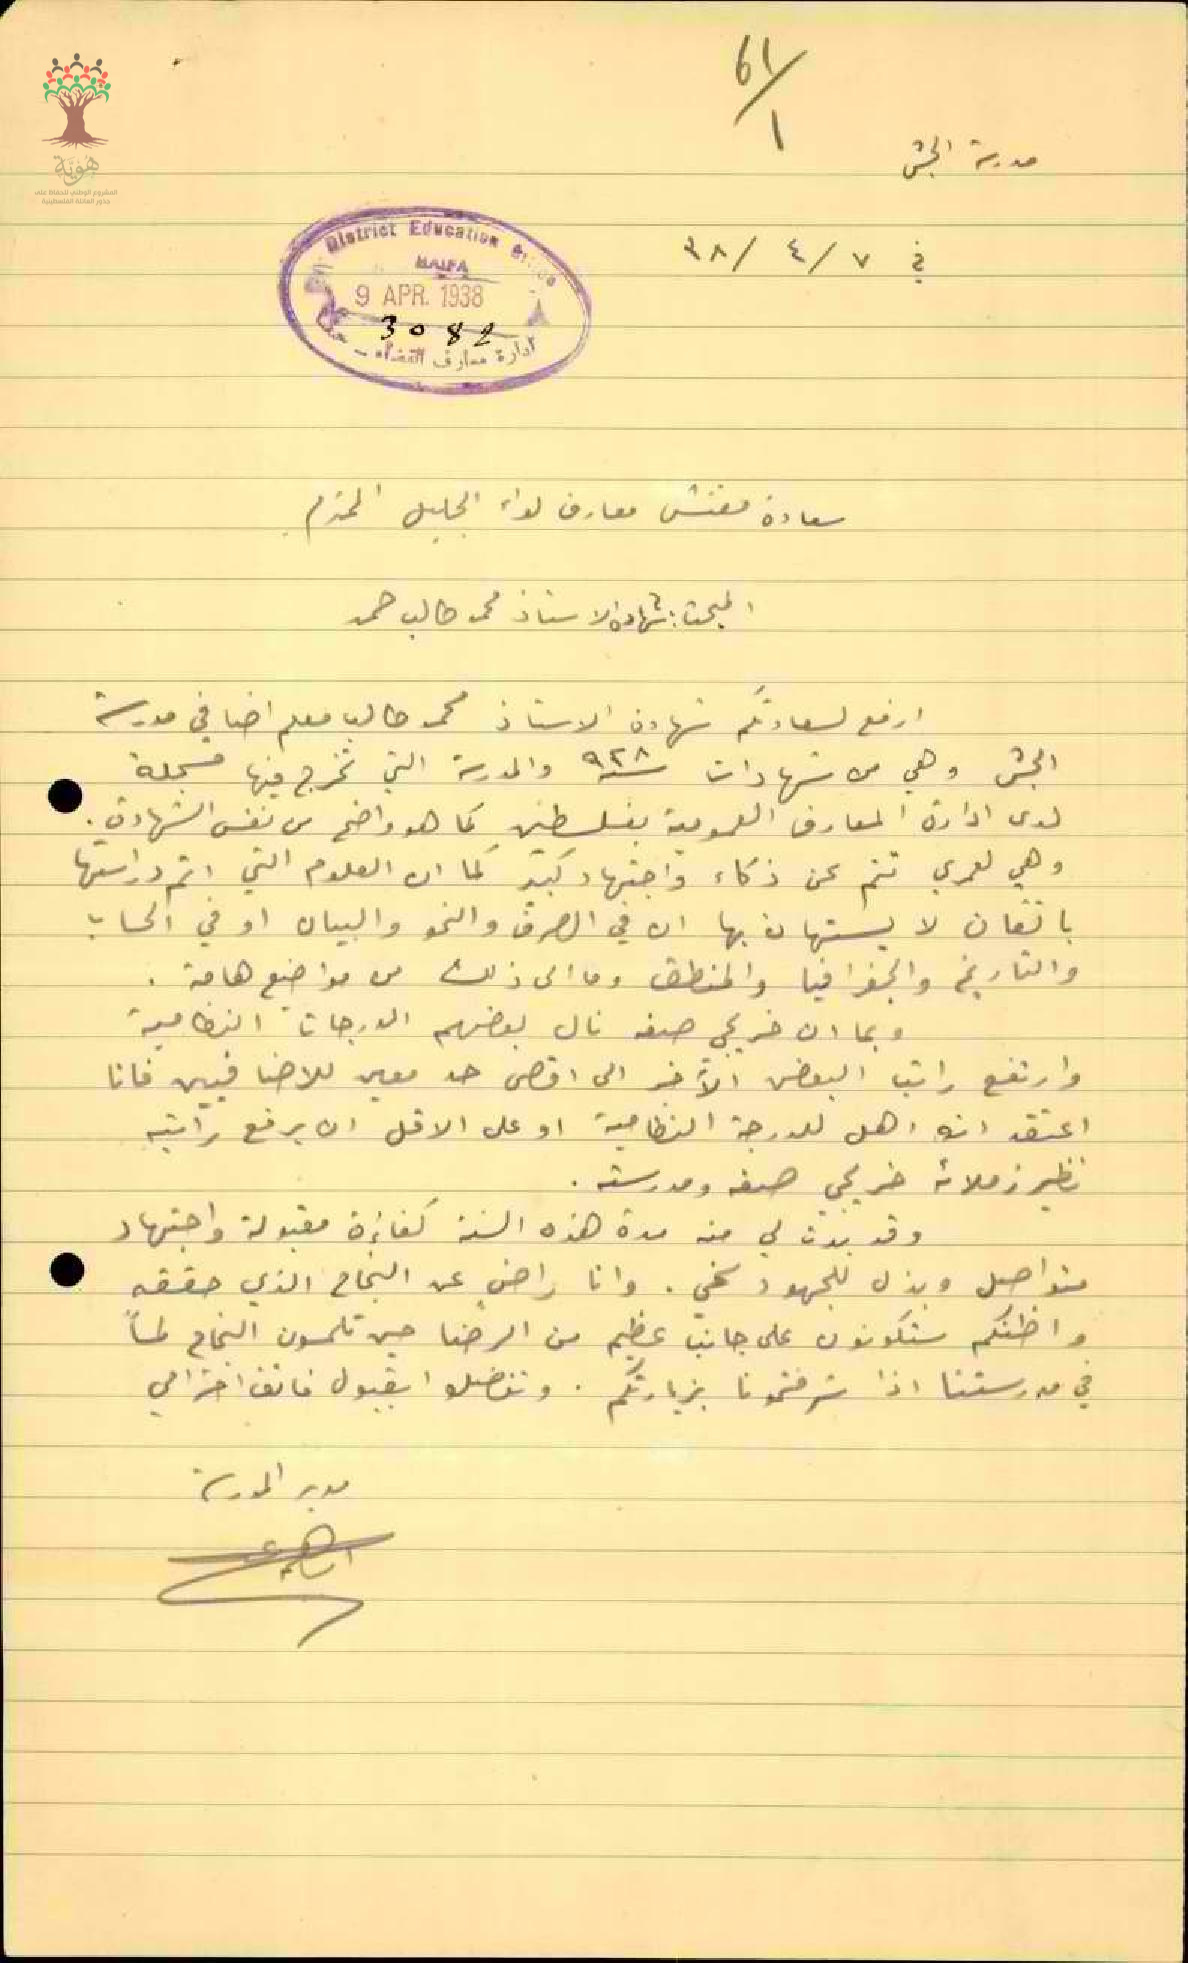 ٦١/١
مدرسة الجش
في ٧ / ٤ / ٣٨
هُوِيَّة
المشروع الوطني للحفاظ على
جذور العائلة الفلسطينية
District Education Office
HAIFA
9 APR. 1938
3082
ادارة معارف القضاء - حيفا
سعادة مفتش معارف لواء الجليل المحترم
المبحث: شهادة الاستاذ محمد طالب حمد
ارفع لسعادتكم شهادة الاستاذ محمد طالب معلم اضافي مدرسة
الجش وهي من شهادات سنة ٩٢٨ والمدرسة التي تخرج فيها مسجلة
لدى ادارة المعارف العمومية بفلسطين كما هو واضح من نفس الشهادة.
وهي لعمري تنم عن ذكاء واجتهاد كبير كما ان العلوم التي اتم دراستها
باتقان لا يستهان بها ان في الصرف والنحو والبيان او في الحساب
والتاريخ والجغرافيا والمنطق وما الى ذلك من مواضيع هامة.
وبما ان خريجي صفه نال بعضهم الدرجات النظامية
وارتفع راتب البعض الآخر الى اقصى حد معين للاضافيين فانا
اعتقد انه اهل للدرجة النظامية او على الاقل ان يرفع راتبه
نظير زملائه خريجي صفه ومدرسته.
وقد بدت لي منه مدة هذه السنة كفاءة مقبولة واجتهاد
متواصل وبذل للجهود سخي. وانا راضٍ عن النجاح الذي حققه
واظنكم ستكونون على جانب عظيم من الرضا حين تلمسون النجاح لمساً
في مدرستنا اذا شرفتمونا بزيارتكم. وتفضلوا بقبول فائق احترامي
مدير المدرسة